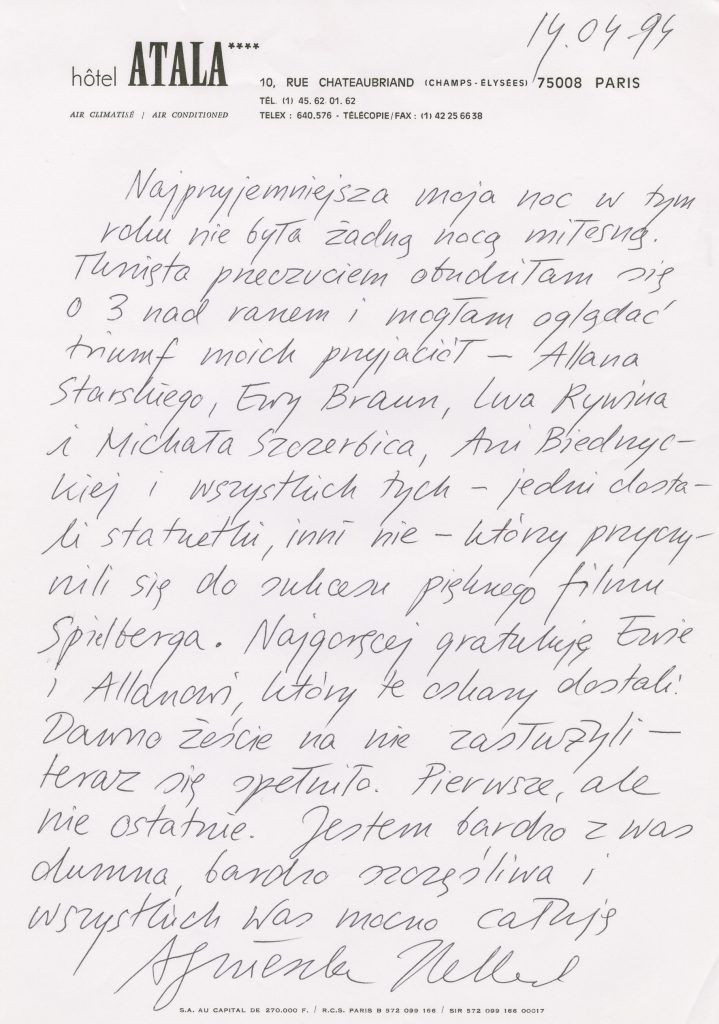 14.04.94
hôtel ATALA****
10, RUE CHATEAUBRIAND (CHAMPS-ÉLYSÉES) 75008 PARIS
TÉL. (1) 45. 62 01. 62
AIR CLIMATISÉ / AIR CONDITIONED
TELEX : 640.576 - TÉLÉCOPIE/FAX : (1) 42 25 66 38
Najprzyjemniejsza moja noc w tym
roku nie była żadną nocą miłosną.
Tknięta przeczuciem obudziłam się
o 3 nad ranem i mogłam oglądać
triumf moich przyjaciół – Allana
Starskiego, Ewy Braun, Lwa Rywina
i Michała Szczerbica, Ani Biedrzyc-
kiej i wszystkich tych – jedni dosta-
li statuetki, inni nie – którzy przyczy-
nili się do sukcesu pięknego filmu
Spielberga. Najgoręcej gratuluję Ewie
i Allanowi, którzy te oskary dostali.
Dawno żeście na nie zasłużyli –
teraz się spełniło. Pierwsze, ale
nie ostatnie. Jestem bardzo z was
dumna, bardzo szczęśliwa i
wszystkich Was mocno całuję
Agnieszka Holland
S.A. AU CAPITAL DE 270.000 F. / R.C.S. PARIS B 572 099 166 / SIR 572 099 166 00017